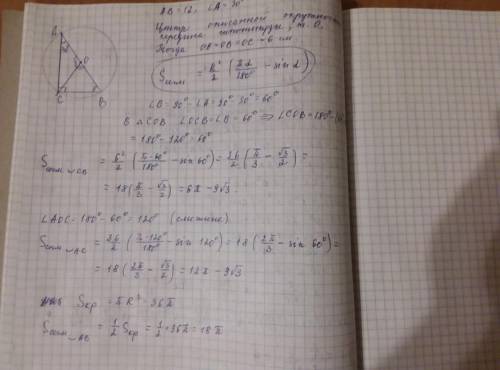 AB=12, ∠A=30°
Центр описанной окружности
середина гипотенузы, т. O.
Тогда OA=OB=OC=6 см
S сегм = R²/2 (πα/180° - sin α)
∠B=90°-∠A=90°-30°=60°
В △COB ∠OCB=∠B=60° ⇒ ∠COB=180°-
=180°-120°=60°
S сегм ◡CB = R²/2 (π·60°/180° - sin 60°) = 36/2 (π/3 - √3/2) =
= 18(π/3 - √3/2) = 6π - 9√3
∠AOC=180°-60°=120° (смежные)
S сегм ◡AC = 36/2 (π·120°/180° - sin 120°) = 18(2π/3 - sin 60°) =
= 18(2π/3 - √3/2) = 12π - 9√3
Sкр = πR² = 36π
S сегм ◡AB = 1/2 Sкр = 1/2 · 36π = 18π
A
O
C
B